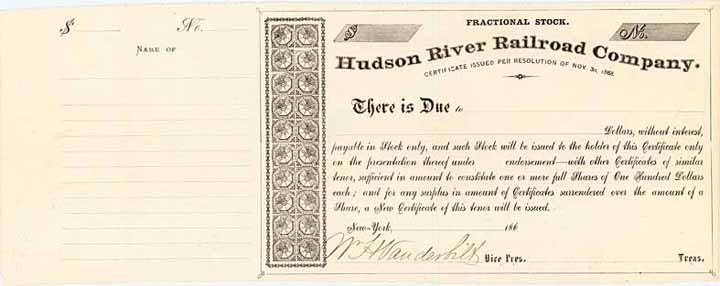 $ No.
NAME OF
FRACTIONAL STOCK.
$ No.
Hudson River Railroad Company.
CERTIFICATE ISSUED PER RESOLUTION OF NOV. 3d, 1862.
There is Due to
Dollars, without interest,
payable in Stock only, and such Stock will be issued to the holder of this Certificate only
on the presentation thereof under endorsement—with other Certificates of similar
tenor, sufficient in amount to constitute one or more full Shares of One Hundred Dollars
each; and for any surplus in amount of Certificates surrendered over the amount of a
Share, a New Certificate of this tenor will be issued.
New-York, 186
Wm H Vanderbilt Vice Pres. Treas.